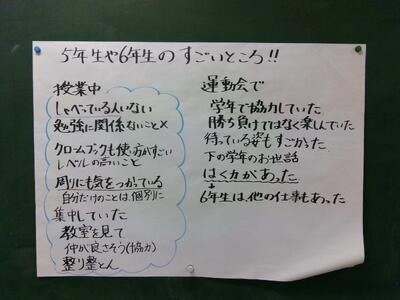 5年生や6年生のすごいところ!!
授業中
しゃべっている人いない
勉強に関係ないこと×
クロームブックも使い方がすごい
レベルの高いこと
周りにも気をつかっている
自分だけのことは、個別に
集中していた
教室を見て
仲が良さそう(協力)
整り整とん
運動会で
学年で協力していた
勝ち負けではなく楽しんでいた
待っている姿もすごかった
下の学年のお世話
はく力があった
+
6年生は、他の仕事もあった